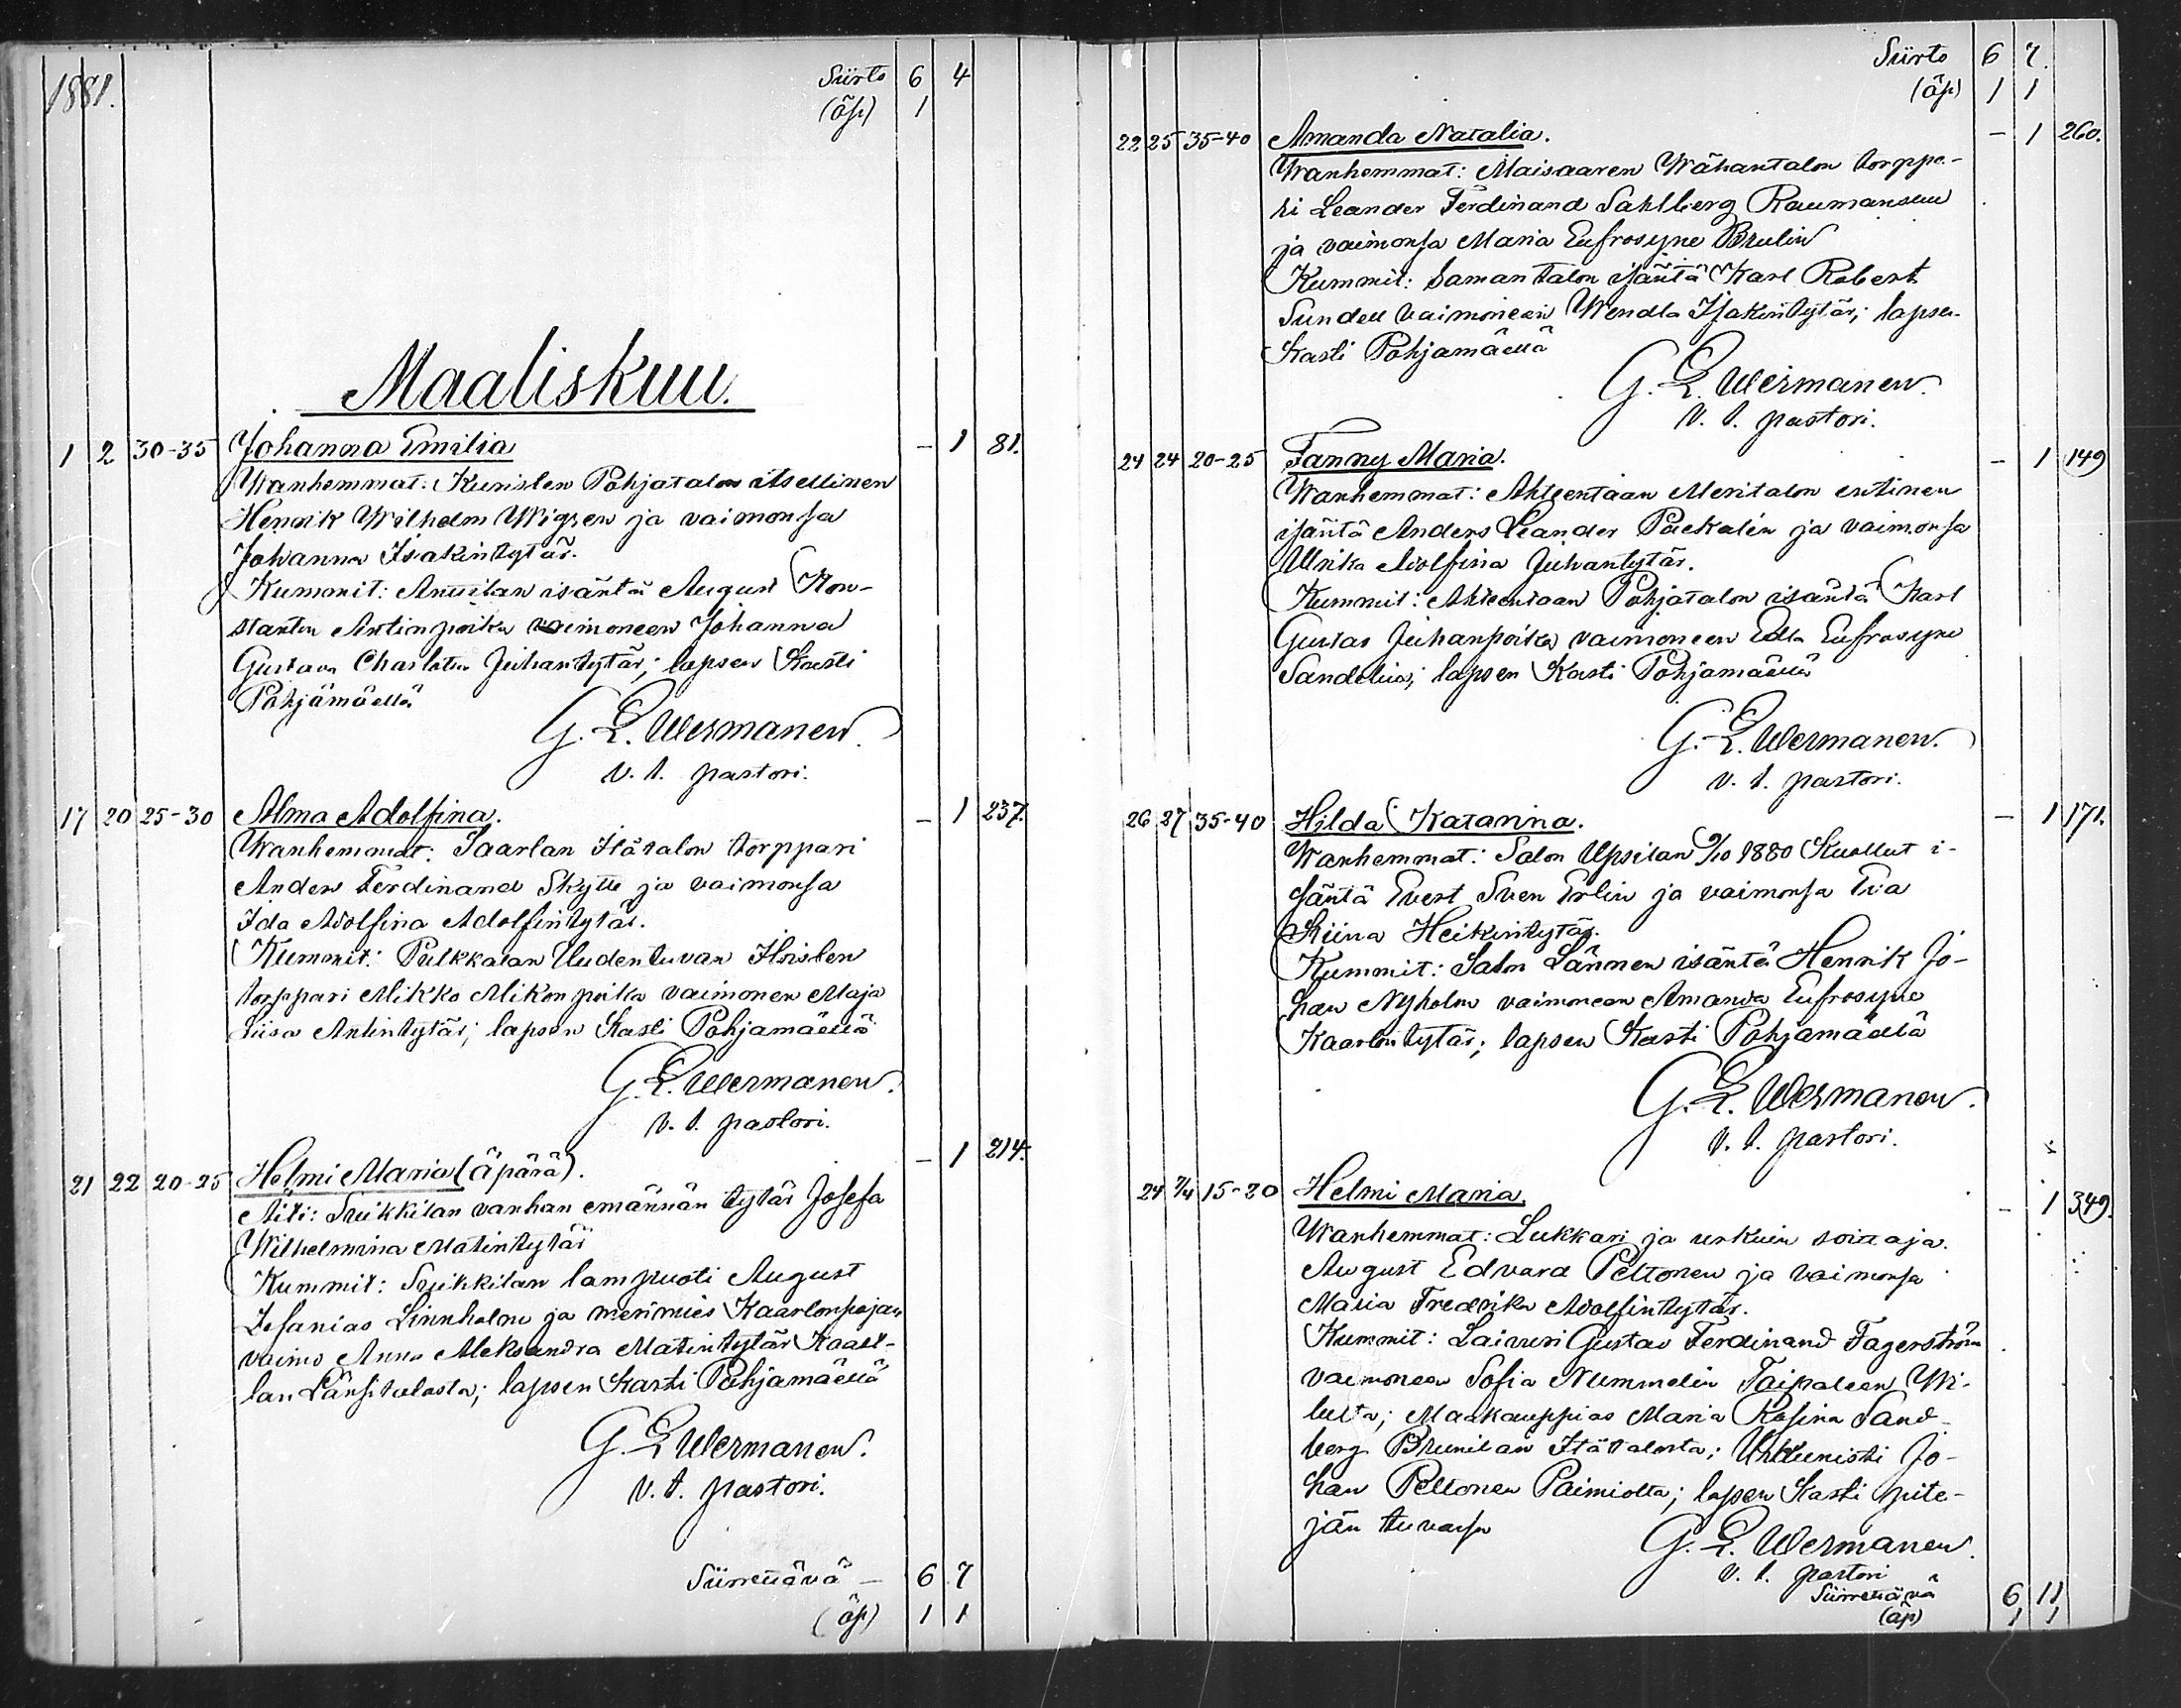 1881.
Siirto 6 4
(äp) 1
Maaliskuu.
1 2 30-35 Johanna Emilia - 1 81.
Wanhemmat: Kuristen Pohjatalon itsellinen
Henrik Wilhelm Wigren ja vaimonsa
Johanna Isakintytär.
Kummit: Anttilan isäntä August Kon-
stantin Antinpoika vaimoneen Johanna
Gustava Charlotta Juhantytär; lapsen Kasti
Pohjamäellä
G. E. Wermanen.
v. t. pastori.
17 20 25-30 Alma Adolfina. - 1 237.
Wanhemmat: Saarlan Itätalon torppari
Anders Ferdinand Skytte ja vaimonsa
Ida Adolfina Adolfintytär.
Kummit: Pulkkalan Uudentuvan
torppari Mikko Mikonpoika vaimonen Maja
Liisa Antintytär; lapsen Kasti Pohjamäellä
G. E. Wermanen.
v. t. pastori.
21 22 20-25 Helmi Maria (Äpärä). - 1 214.
Äiti: Suikkilan vanhan emännän tytär Josefa
Wilhelmina Matintytär
Kummit: Suikkilan lampuoti August
Zefanias Linnholm ja merimies Kaarlonpojan
vaimo Anna Aleksandra Matintytär Kaarl-
lan Länsitalosta; lapsen Kasti Pohjamäellä
G. E. Wermanen.
v. t. pastori.
Siirrettävä - 6 7
(äp) 1 1
Siirto 6 7.
(äp) 1 1
22 25 35-40 Amanda Natalia. - 1 260.
Wanhemmat: Maisaaren Wähäntalon torppa-
ri Leander Ferdinand Sahlberg Raumansuu
ja vaimonsa Maria Eufrosyne Brulin
Kummit: Saman talon isäntä Karl Robert
Sundell vaimoneen Wendla Isakintytär; lapsen
Kasti Pohjamäellä
G. E. Wermanen.
v. t. pastori.
24 24 20-25 Fanny Maria. - 1 149
Wanhemmat: Ahteentaan Meritalon entinen
isäntä Anders Leander Packalén ja vaimonsa
Ulrika Adolfina Juhantytär.
Kummit: Ahteentaan Pohjatalon isäntä Karl
Gustav Juhanpoika vaimoneen Edla Eufrosyne
Sandelia; lapsen Kasti Pohjamäellä
G. E. Wermanen.
v. t. pastori.
26 27 35-40 Hilda Katarina. - 1 171.
Wanhemmat: Salon Upsilan 9/10 1880 Kuollut i-
säntä Evert Sven Erlin ja vaimonsa Eva
Stiina Heikintytär.
Kummit: Salon Lännen isäntä Henrik Jo-
han Nyholm vaimoneen Amanda Eufrosyne
Kaarlontytär; lapsen Kasti Pohjamäellä
G. E. Wermanen.
v. t. pastori.
24 7/4 15-20 Helmi Maria. - 1 349.
Wanhemmat: Lukkari ja urkuin soittaja
August Edvard Peltonen ja vaimonsa
Maria Fredrika Adolfintytär.
Kummit: Laivuri Gustav Ferdinand Fagerström
vaimoneen Sofia Nummelin Taipaleen Wi-
lulta; Maakauppias Maria Rosina Sand-
berg Brunilan Itätalosta; Urkunisti Jo-
han Peltonen Paimiolta; lapsen Kasti pitä-
jän tuvassa
G. E. Wermanen.
v. t. pastori
Siirrettävä 6 11
(äp) 1 1